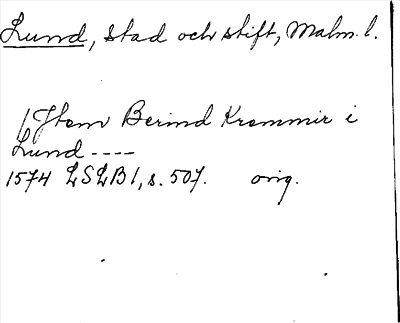 Lund, stad och stift, Malm. l.
Jtem Berind Krammir i
Lund ----
1574 LSLB 1, s. 507. orig.